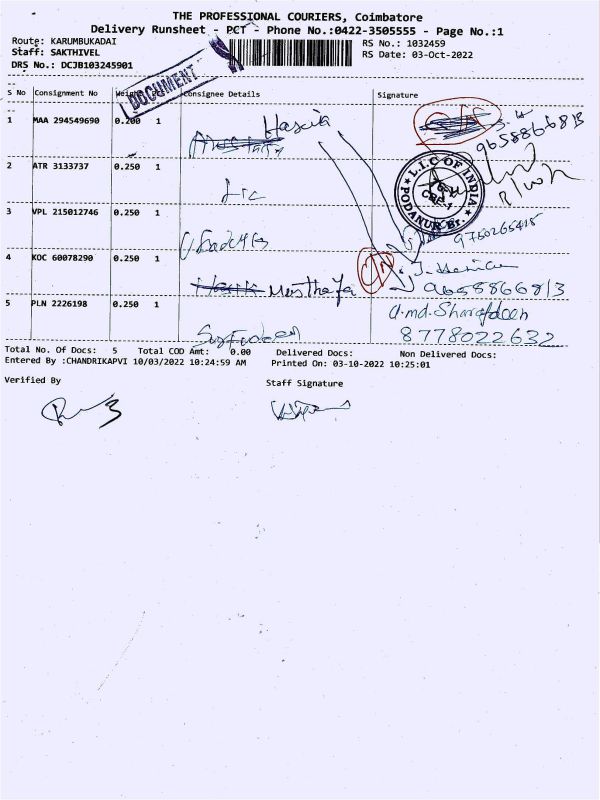 THE PROFESSIONAL COURIERS, Coimbatore
Delivery Runsheet - PCT - Phone No.:0422-3505555 - Page No.:1
Route: KARUMBUKADAI RS No.: 1032459
Staff: SAKTHIVEL RS Date: 03-Oct-2022
DRS No.: DCJB103245901
DOCUMENT
S No Consignment No Weight Pcs Consignee Details Signature
1 MAA 294549690 0.200 1
9658866813
2 ATR 3133737 0.250 1 Lic
L.I.C OF INDIA
PODANUR Br.
3 VPL 215012746 0.250 1
9750265415
4 KOC 60078290 0.250 1 Musthafa
9658866813
5 PLN 2226198 0.250 1 a.md.Sharafdeen
8778022632
Total No. Of Docs: 5 Total COD Amt: 0.00 Delivered Docs: Non Delivered Docs:
Entered By :CHANDRIKAPVI 10/03/2022 10:24:59 AM Printed On: 03-10-2022 10:25:01
Verified By Staff Signature